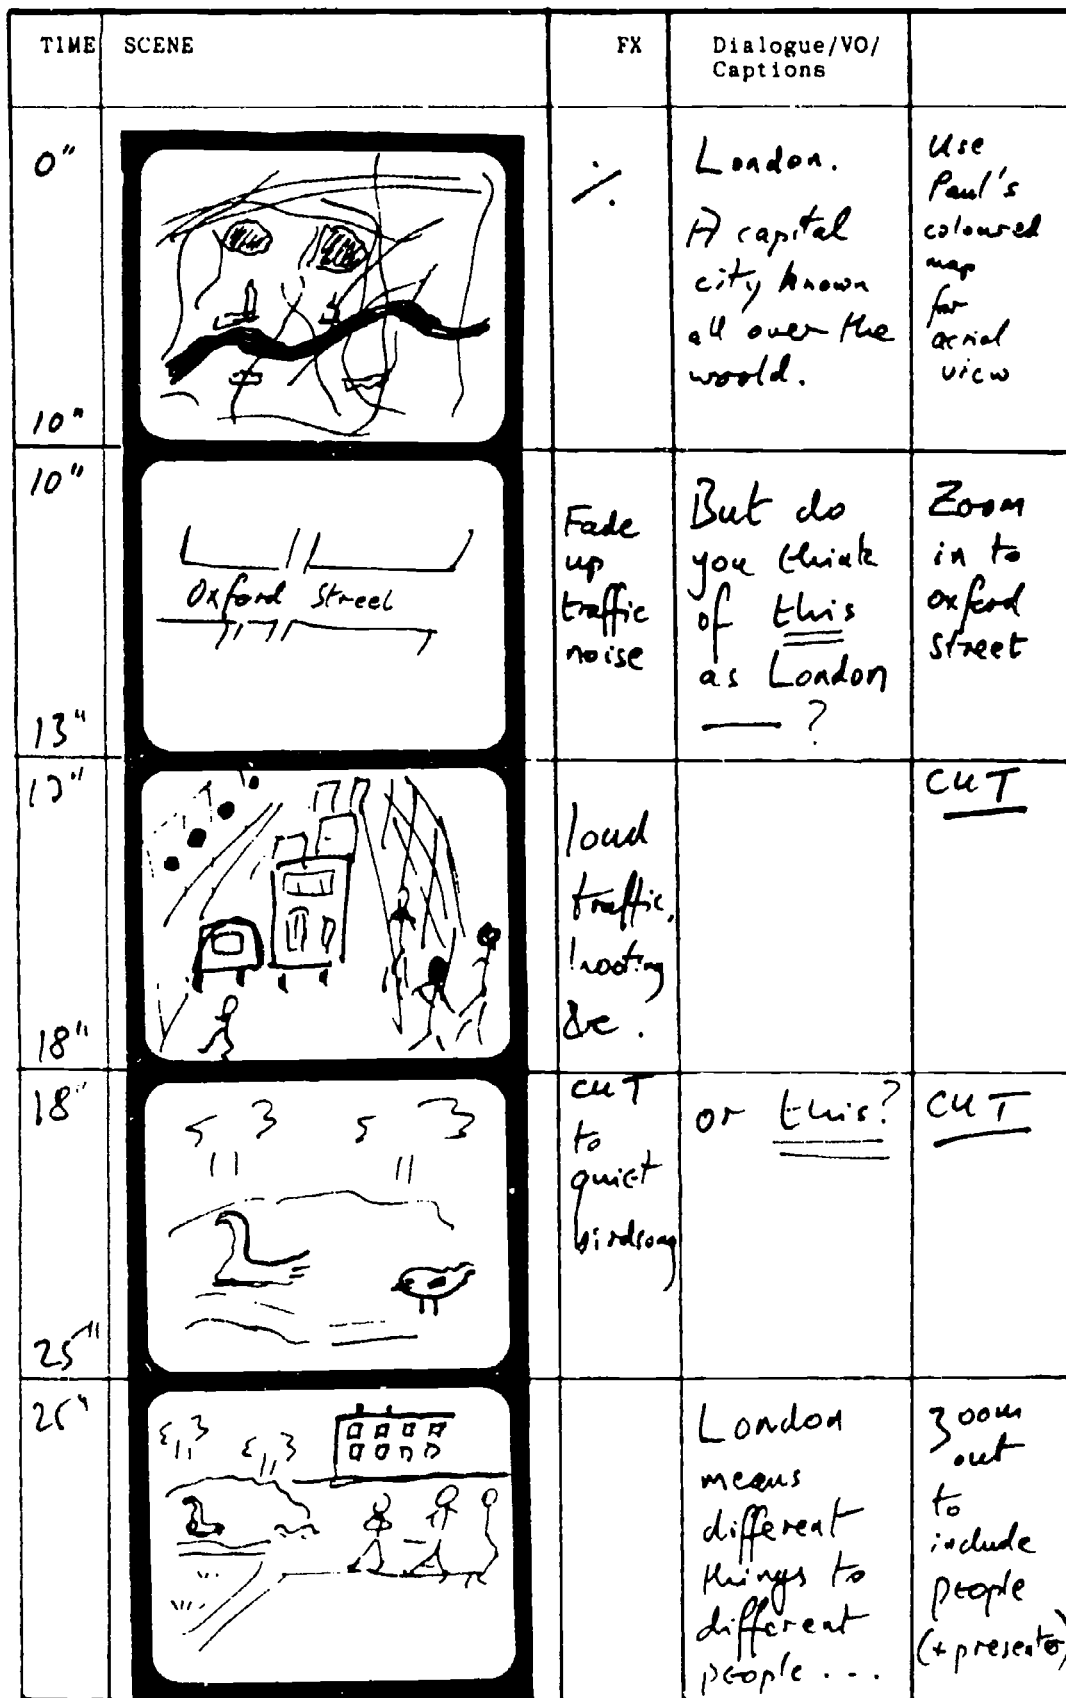 TIME SCENE FX Dialogue/VO/
Captions
0"
10"
./.
London.
A capital
city known
all over the
world.
Use
Paul's
coloured
map
for
aerial
view
10"
13"
Oxford Street
Fade
up
traffic
noise
But do
you think
of this
as London
— ?
Zoom
in to
Oxford
Street
13"
18"
loud
traffic,
hooting
&c.
CUT
18"
25"
CUT
to
quiet
birdsong
or this?
CUT
25"
London
means
different
things to
different
people ...
Zoom
out
to
include
people
(+ presenter)